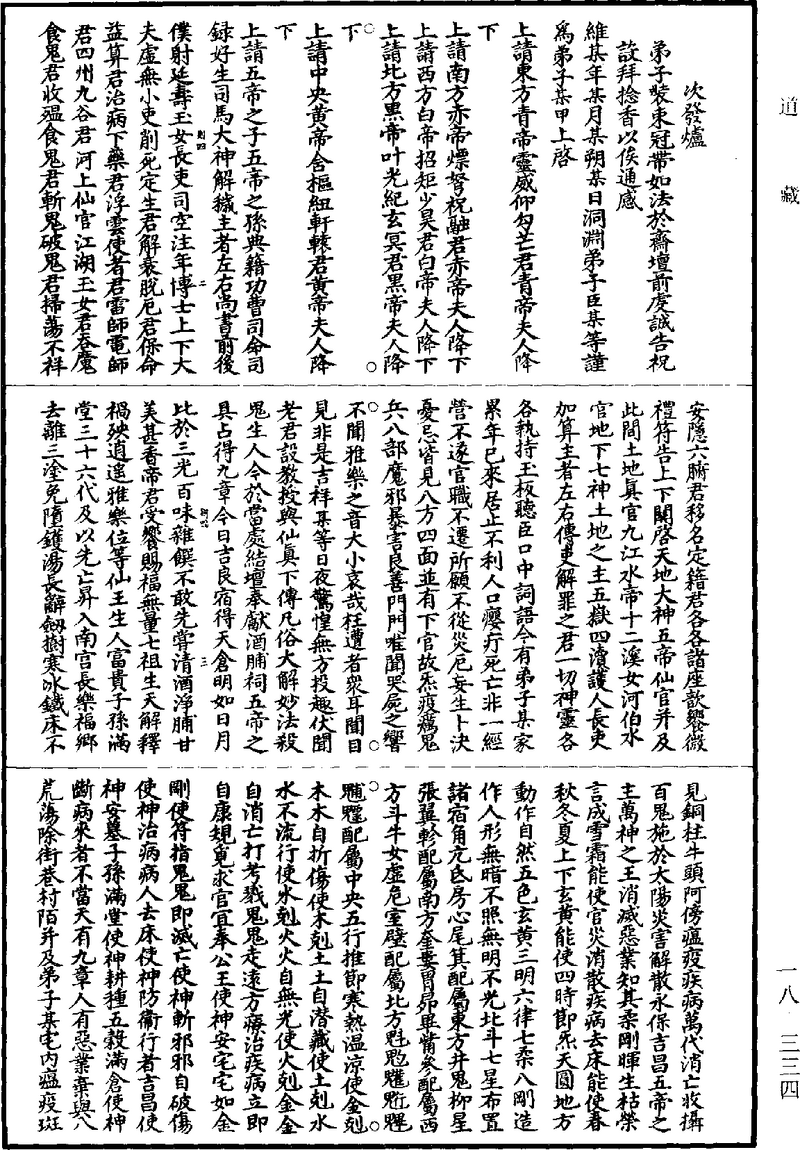 道藏
次發爐
弟子裝束冠帶如法於齋壇前虔誠告祝
設拜捻香以俟通感
維某年某月某朔某日洞淵弟子臣某等謹
爲弟子某甲上啓
上請東方青帝靈威仰勾芒君青帝夫人降
下
上請南方赤帝熛弩祝融君赤帝夫人降下
上請西方白帝招矩少昊君白帝夫人降下
上請北方黑帝叶光紀玄冥君黑帝夫人降
下
上請中央黃帝含樞紐軒轅君黃帝夫人降
下
上請五帝之子五帝之孫典籍功曹司命司
録好生司馬大神解穢主者左右尚書前後
僕射延壽玉女長吏司空注年博士上下大
夫虛無小吏削死定生君解衰脫厄君保命
益算君治病下藥君浮雲使者君雷師電師
君四州九谷君河上仙官江湖玉女君吞魔
食鬼君收瘟食鬼君斬鬼破鬼君掃蕩不祥
安隱六腑君移名定籍君各各諸座歆饗微
禮符告上下關啓天地大神五帝仙官并及
此間土地真官九江水帝十二溪女河伯水
官地下七神土地之主五嶽四瀆護人長吏
加算主者左右傳吏解罪之君一切神靈各
各執持玉板聽臣口中詞語今有弟子某家
累年已來居止不利人口癭疔死亡非一經
營不遂官職不遷所願不從災厄妄生卜決
憂忌皆見八方四面並有下官故炁疫癘鬼
兵八部魔邪暴害良善門門唯聞哭屍之響
不聞雅樂之音大小哀哉枉遭者衆耳聞目
見非是吉祥某等日夜驚惶無方投趣伏聞
老君設教授與仙眞下傳凡俗大解妙法殺
鬼生人今於當處結壇奉獻酒脯祠五帝之
具占得九章今日吉良宿得天倉明如日月
比於三光百味雜饌不敢先嘗清酒淨脯甘
美甚香帝君受饗賜福無量七祖生天解釋
禍殃逍遥雅樂位等仙王生人富貴子孫滿
堂三十六代及以先亡昇入南宮長樂福鄉
去離三塗免墮鑊湯長辭劒樹寒冰鐵床不
見銅柱牛頭阿傍瘟疫疾病萬代消亡收攝
百鬼施於太陽炎害解散永保吉昌五帝之
主萬神之王消滅惡業知其柔剛暉生枯榮
言成雪霜能使官災消散疾病去床能使春
秋冬夏上下玄黃能使四時節炁天圓地方
動作自然五色玄黃三明六律七柔八剛造
作人形無暗不照無明不光北斗七星布置
諸宿角亢氐房心尾箕配屬東方井鬼柳星
張翼軫配屬南方奎婁胃昴畢觜參配屬西
方斗牛女虛危室壁配屬北方
配屬中央五行推節寒熱溫涼使金剋
木木自折傷使木剋土土自潛藏使土剋水
水不流行使水剋火火自無光使火剋金金
自消亡打考戮鬼鬼走遠方療治疾病立即
自康規覓求官宜奉公王使神安宅宅如金
剛使符指鬼鬼即滅亡使神斬邪邪自破傷
使神治病病人去床使神防衞行者吉昌使
神安墓子孫滿堂使神耕種五穀滿倉使神
斷病來者不當天有九章人有惡業棄與八
荒蕩除街巷村陌并及弟子某宅内瘟疫斑
一八·三三四